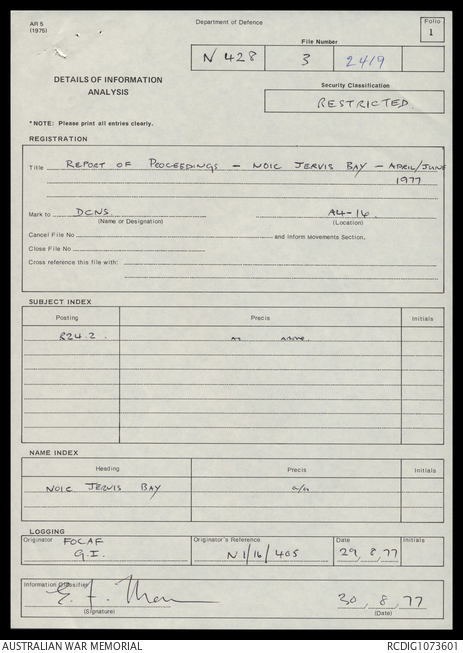 AR 5
(1975)
Department of Defence
Folio
1
File Number
N 428 3 2419
DETAILS OF INFORMATION
ANALYSIS
Security Classification
RESTRICTED
*NOTE: Please print all entries clearly.
REGISTRATION
Title REPORT OF PROCEEDINGS - NOIC JERVIS BAY - APRIL/JUNE
1977
Mark to DCNS A4-16
(Name or Designation) (Location)
Cancel File No and Inform Movements Section.
Close File No
Cross reference this file with:
SUBJECT INDEX
Posting Precis Initials
R24.2. as above.
NAME INDEX
Heading Precis Initials
NOIC JERVIS BAY a/a
LOGGING
Originator FOCAF
G.I.
Originator's Reference
N1/16/405
Date
29,8,77
Initials
Information Classifier
(Signature)
30,8,77
(Date)
AUSTRALIAN WAR MEMORIAL RCDIG1073601